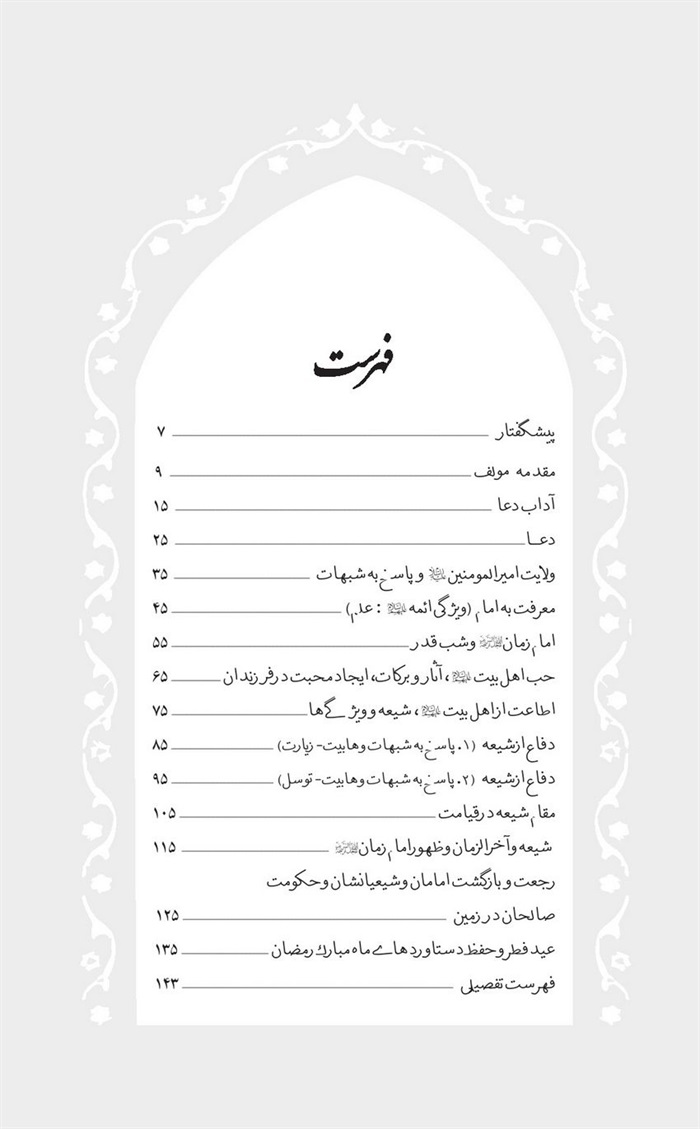 فهرست
پیشگفتار ۷
مقدمه مولف ۹
آداب دعا ۱۵
دعـا ۲۵
ولایت امیرالمومنین و پاسخ به شبهات ۳۵
معرفت به امام (ویژگی ائمه : علم) ۴۵
امام زمان و شب قدر ۵۵
حب اهل بیت ، آثار و برکات، ایجاد محبت در فرزندان ۶۵
اطاعت از اهل بیت ، شیعه و ویژگی‌ها ۷۵
دفاع از شیعه (۱. پاسخ به شبهات وهابیت- زیارت) ۸۵
دفاع از شیعه (۲. پاسخ به شبهات وهابیت- توسل) ۹۵
مقام شیعه در قیامت ۱۰۵
شیعه و آخرالزمان و ظهور امام زمان ۱۱۵
رجعت و بازگشت امامان و شیعیانشان و حکومت
صالحان در زمین ۱۲۵
عید فطر و حفظ دستاوردهای ماه مبارک رمضان ۱۳۵
فهرست تفصیلی ۱۴۳